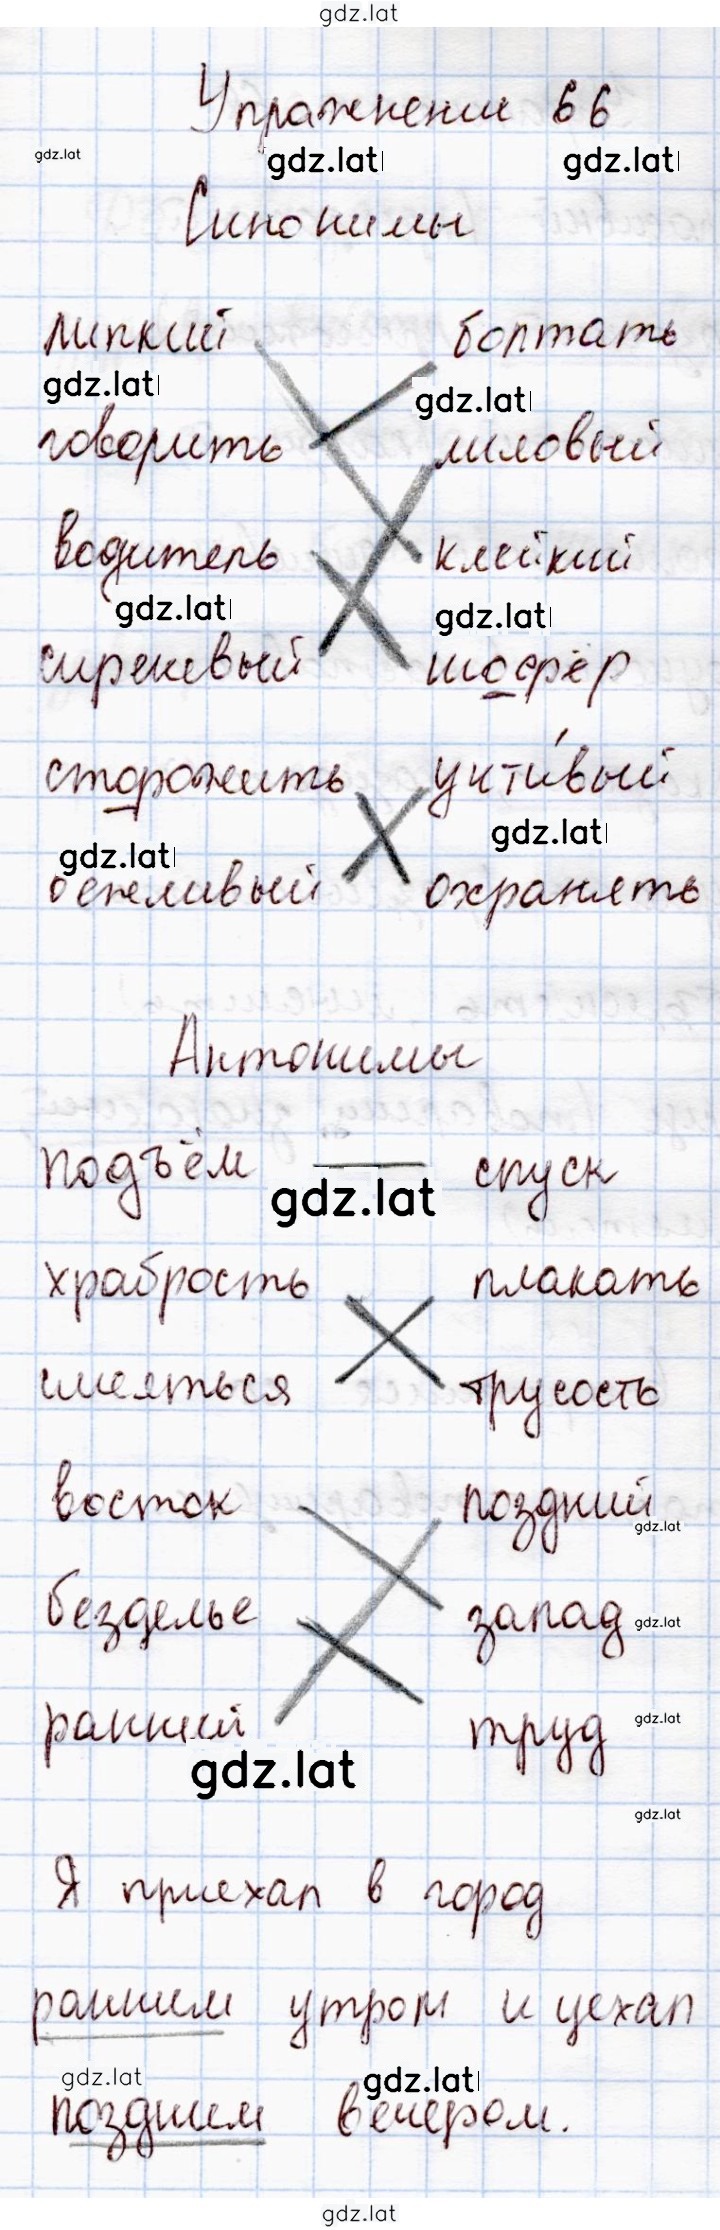 gdz.lat
Упражнение 66
gdz.lat gdz.lat gdz.lat
Синонимы
липкий болтать
gdz.lat gdz.lat
говорить лиловый
водитель клейкий
gdz.lat gdz.lat
сиреневый шофёр
сторожить учтивый
gdz.lat gdz.lat
вежливый охранять
Антонимы
подъём — спуск
gdz.lat
храбрость плакать
смеяться трусость
восток поздний
gdz.lat
безделье запад gdz.lat
ранний труд gdz.lat
gdz.lat
gdz.lat
Я приехал в город
ранним утром и уехал
gdz.lat gdz.lat
поздним вечером.
gdz.lat